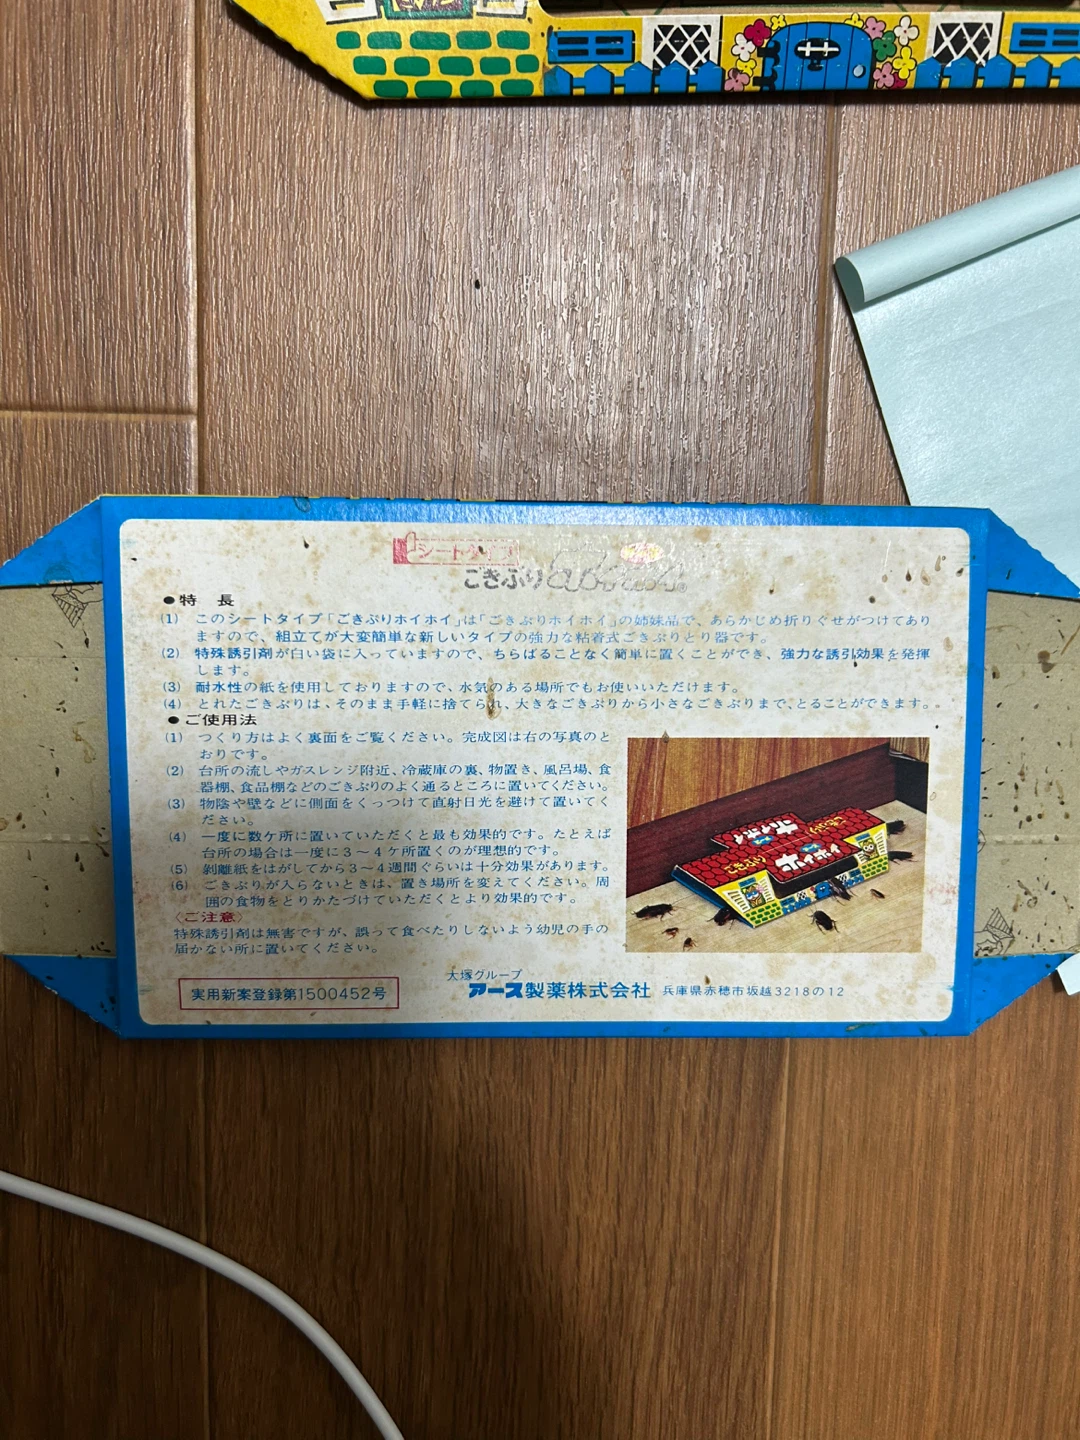 シートタイプ
ごきぶり
●特　長
(1) このシートタイプ「ごきぶりホイホイ」は「ごきぶりホイホイ」の姉妹品で、あらかじめ折りぐせがつけてあり
ますので、組立てが大変簡単な新しいタイプの強力な粘着式ごきぶりとり器です。
(2) 特殊誘引剤が白い袋に入っていますので、ちらばることなく簡単に置くことができ、強力な誘引効果を発揮
します。
(3) 耐水性の紙を使用しておりますので、水気のある場所でもお使いいただけます。
(4) とれたごきぶりは、そのまま手軽に捨てられ、大きなごきぶりから小さなごきぶりまで、とることができます。
●ご使用法
(1) つくり方はよく裏面をご覧ください。完成図は右の写真のと
おりです。
(2) 台所の流しやガスレンジ附近、冷蔵庫の裏、物置き、風呂場、食
器棚、食品棚などのごきぶりのよく通るところに置いてください。
(3) 物陰や壁などに側面をくっつけて直射日光を避けて置いてく
ださい。
(4) 一度に数ケ所に置いていただくと最も効果的です。たとえば
台所の場合は一度に3～4ケ所置くのが理想的です。
(5) 剝離紙をはがしてから3～4週間ぐらいは十分効果があります。
(6) ごきぶりが入らないときは、置き場所を変えてください。周
囲の食物をとりかたづけていただくとより効果的です。
〈ご注意〉
特殊誘引剤は無害ですが、誤って食べたりしないよう幼児の手の
届かない所に置いてください。
ごきぶり
ホイホイ
実用新案登録第1500452号
大塚グループ
アース製薬株式会社 兵庫県赤穂市坂越3218の12